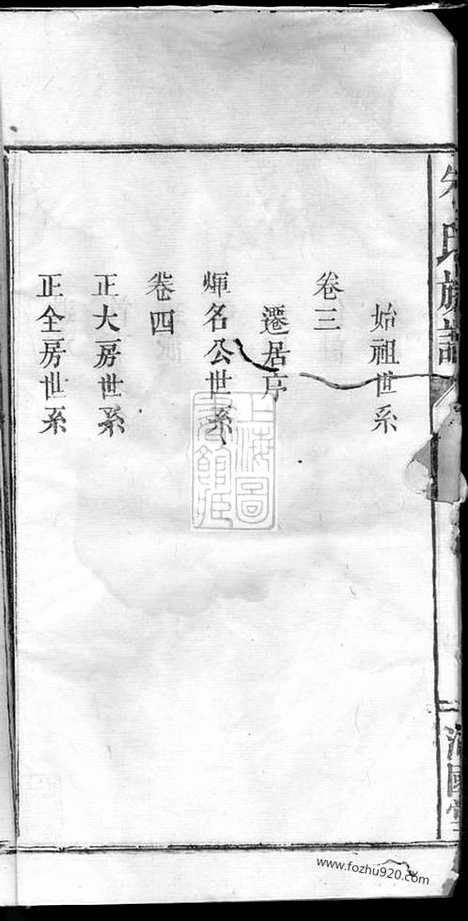 始祖世系
卷三
遷居序
煇名公世系
卷四
正大房世系
正全房世系
氏族譜
上海圖
書館藏
www.fozhu920.com